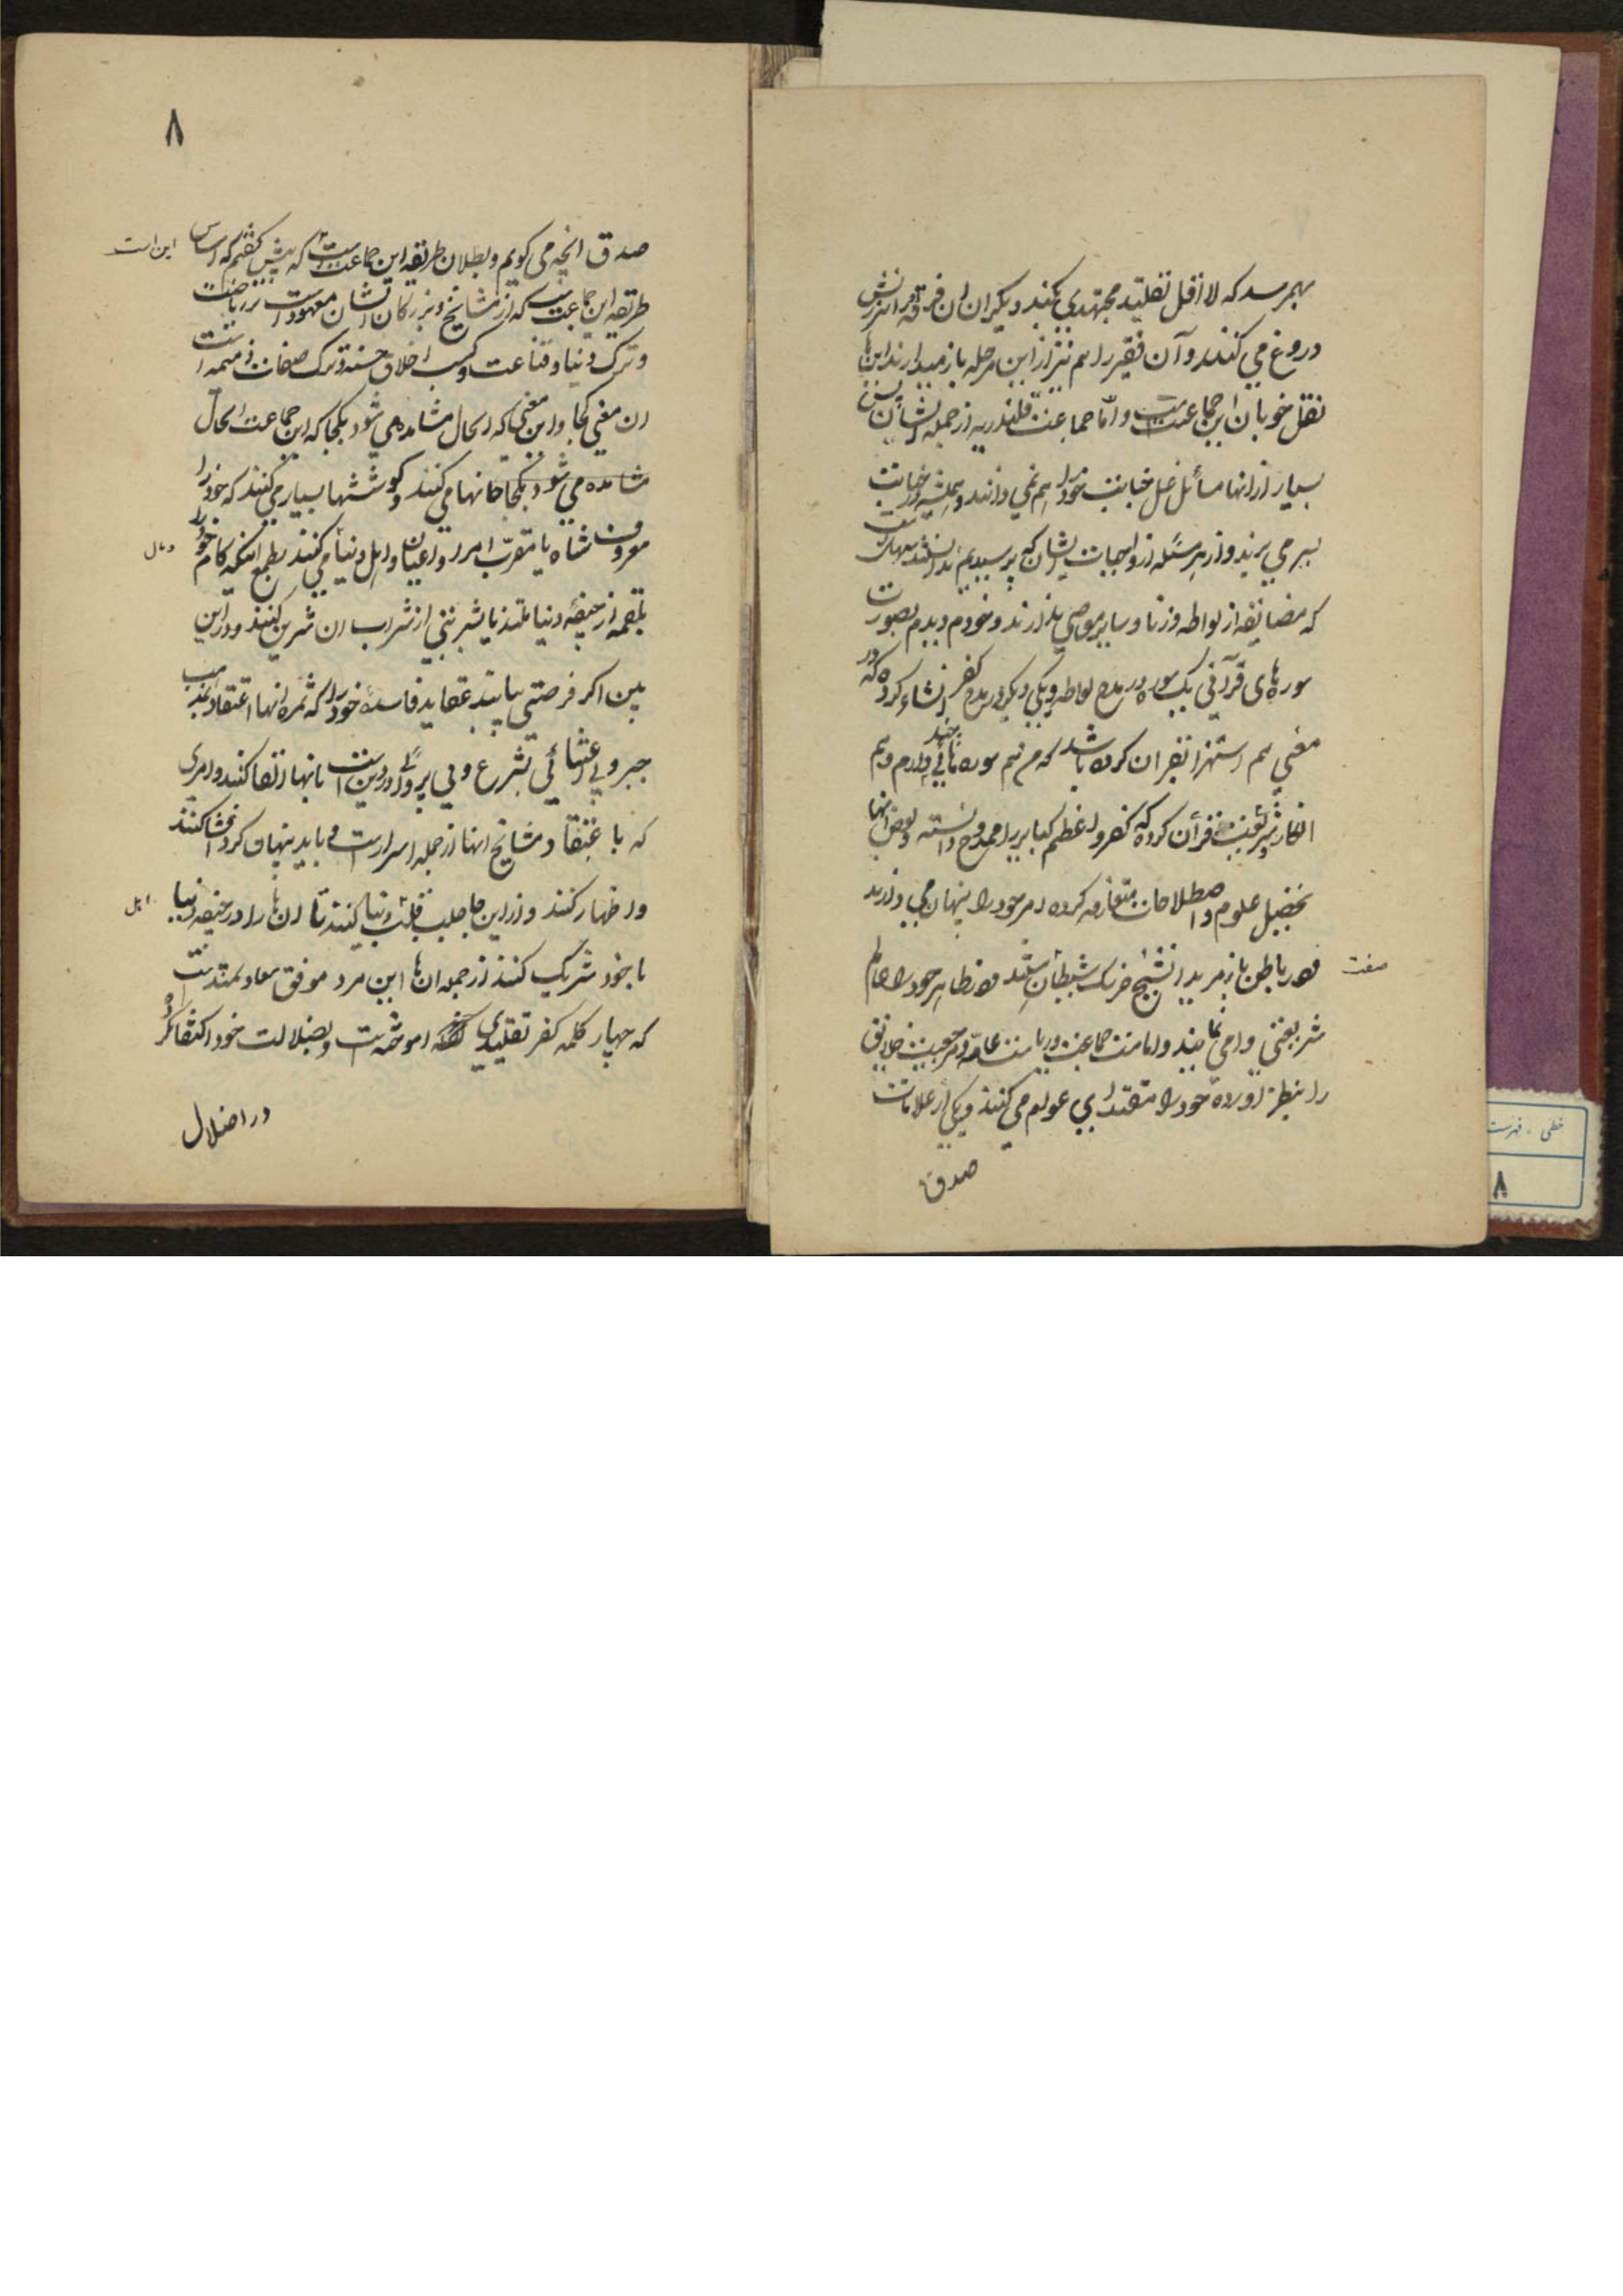 بهمرسد که لا اقل تقلید مجتهدی بکند دیگران ان فرقه او را سرزنش
دروغ می کنند و آن فقیر را هم نیز از این مرحله باز میدارند اینها
نقل خوبان این جماعتست و اما جماعت قلندریه از جمله ایشان پس
بسیار از انها مسائل غسل جنابت خود را هم نمی دانند و همیشه در جنابت
بسر می برند و از هر مسئله از واجبات ایشان که پرسیدیم ندانستند
که مضایقه از لواطه و زنا و سایر معاصی ندارند و خودم دیدم بصورت
سوره های قرآنی یک سوره در مدح لواطه و یکی دیگر در مدح کفر انشاء کرده که در
معنی هم استهزا بقران کرده باشد که من هم سوره چند تائی دارم و هم
انکار شریعت و قرآن کرده که کفر و اعظم کبایر را ممدوح دانسته و بعض انها
تحصیل علوم و اصطلاحات متعارفه کرده امر خود را پنهان می دارند
و در باطن باز مرید ان شیخ خرنک شیطان صفت هستند و در ظاهر خود را عالم
صفت
شریعتی وا می نمایند و امامت جماعت و ریاست عامه و مرجعیت خلایق
را بنظر آورده خود را مقتدای عوام می کنند و یکی از علامات
صدق
٨
صدق انچه می گویم و بطلان طریقه این جماعت این است که پیش گفتم که اساس
این است
طریقه این جماعت که از مشایخ و بزرگان ایشان معهود است بر ریاضت
و ترک دنیا و قناعت و کسب اخلاق حسنه و ترک صفات ذمیمه است
ان معنی کجا و این معنی که الحال مشاهده می شود بکجا که این جماعت الحال
مشاهده می شود بکجا جانها می کنند و کوششها بسیار می کنند که خود را
معروف شاه یا مقرب امرا و اعیان و اهل دنیا می کنند بطمع اینکه کام خود را
بلقمه از جیفه دنیا ملتذ یا بشربتی از شراب ان شیرین کنند و در این
بین اگر فرصتی یابند عقاید فاسده خود را که ثمره انها اعتقاد بمذهب
جبر و بی اعتنائی بشرع و بی پروائی در دین است بانها القا کنند و امری
که با عتقاد مشایخ انها از جمله اسرار است و باید پنهان کرد افشا کنند
و اظهار کنند و از این جا جلب قلب اهل دنیا کنند تا ان ها را در جیفه دنیا
اهل
با خود شریک کنند از جمله ان ها این مرد موفق سعادتمندیست
که چهار کلمه کفر تقلیدی اموخته است و بضلالت خود اکتفا نکرده
در اضلال
خطی - فهرست
٨